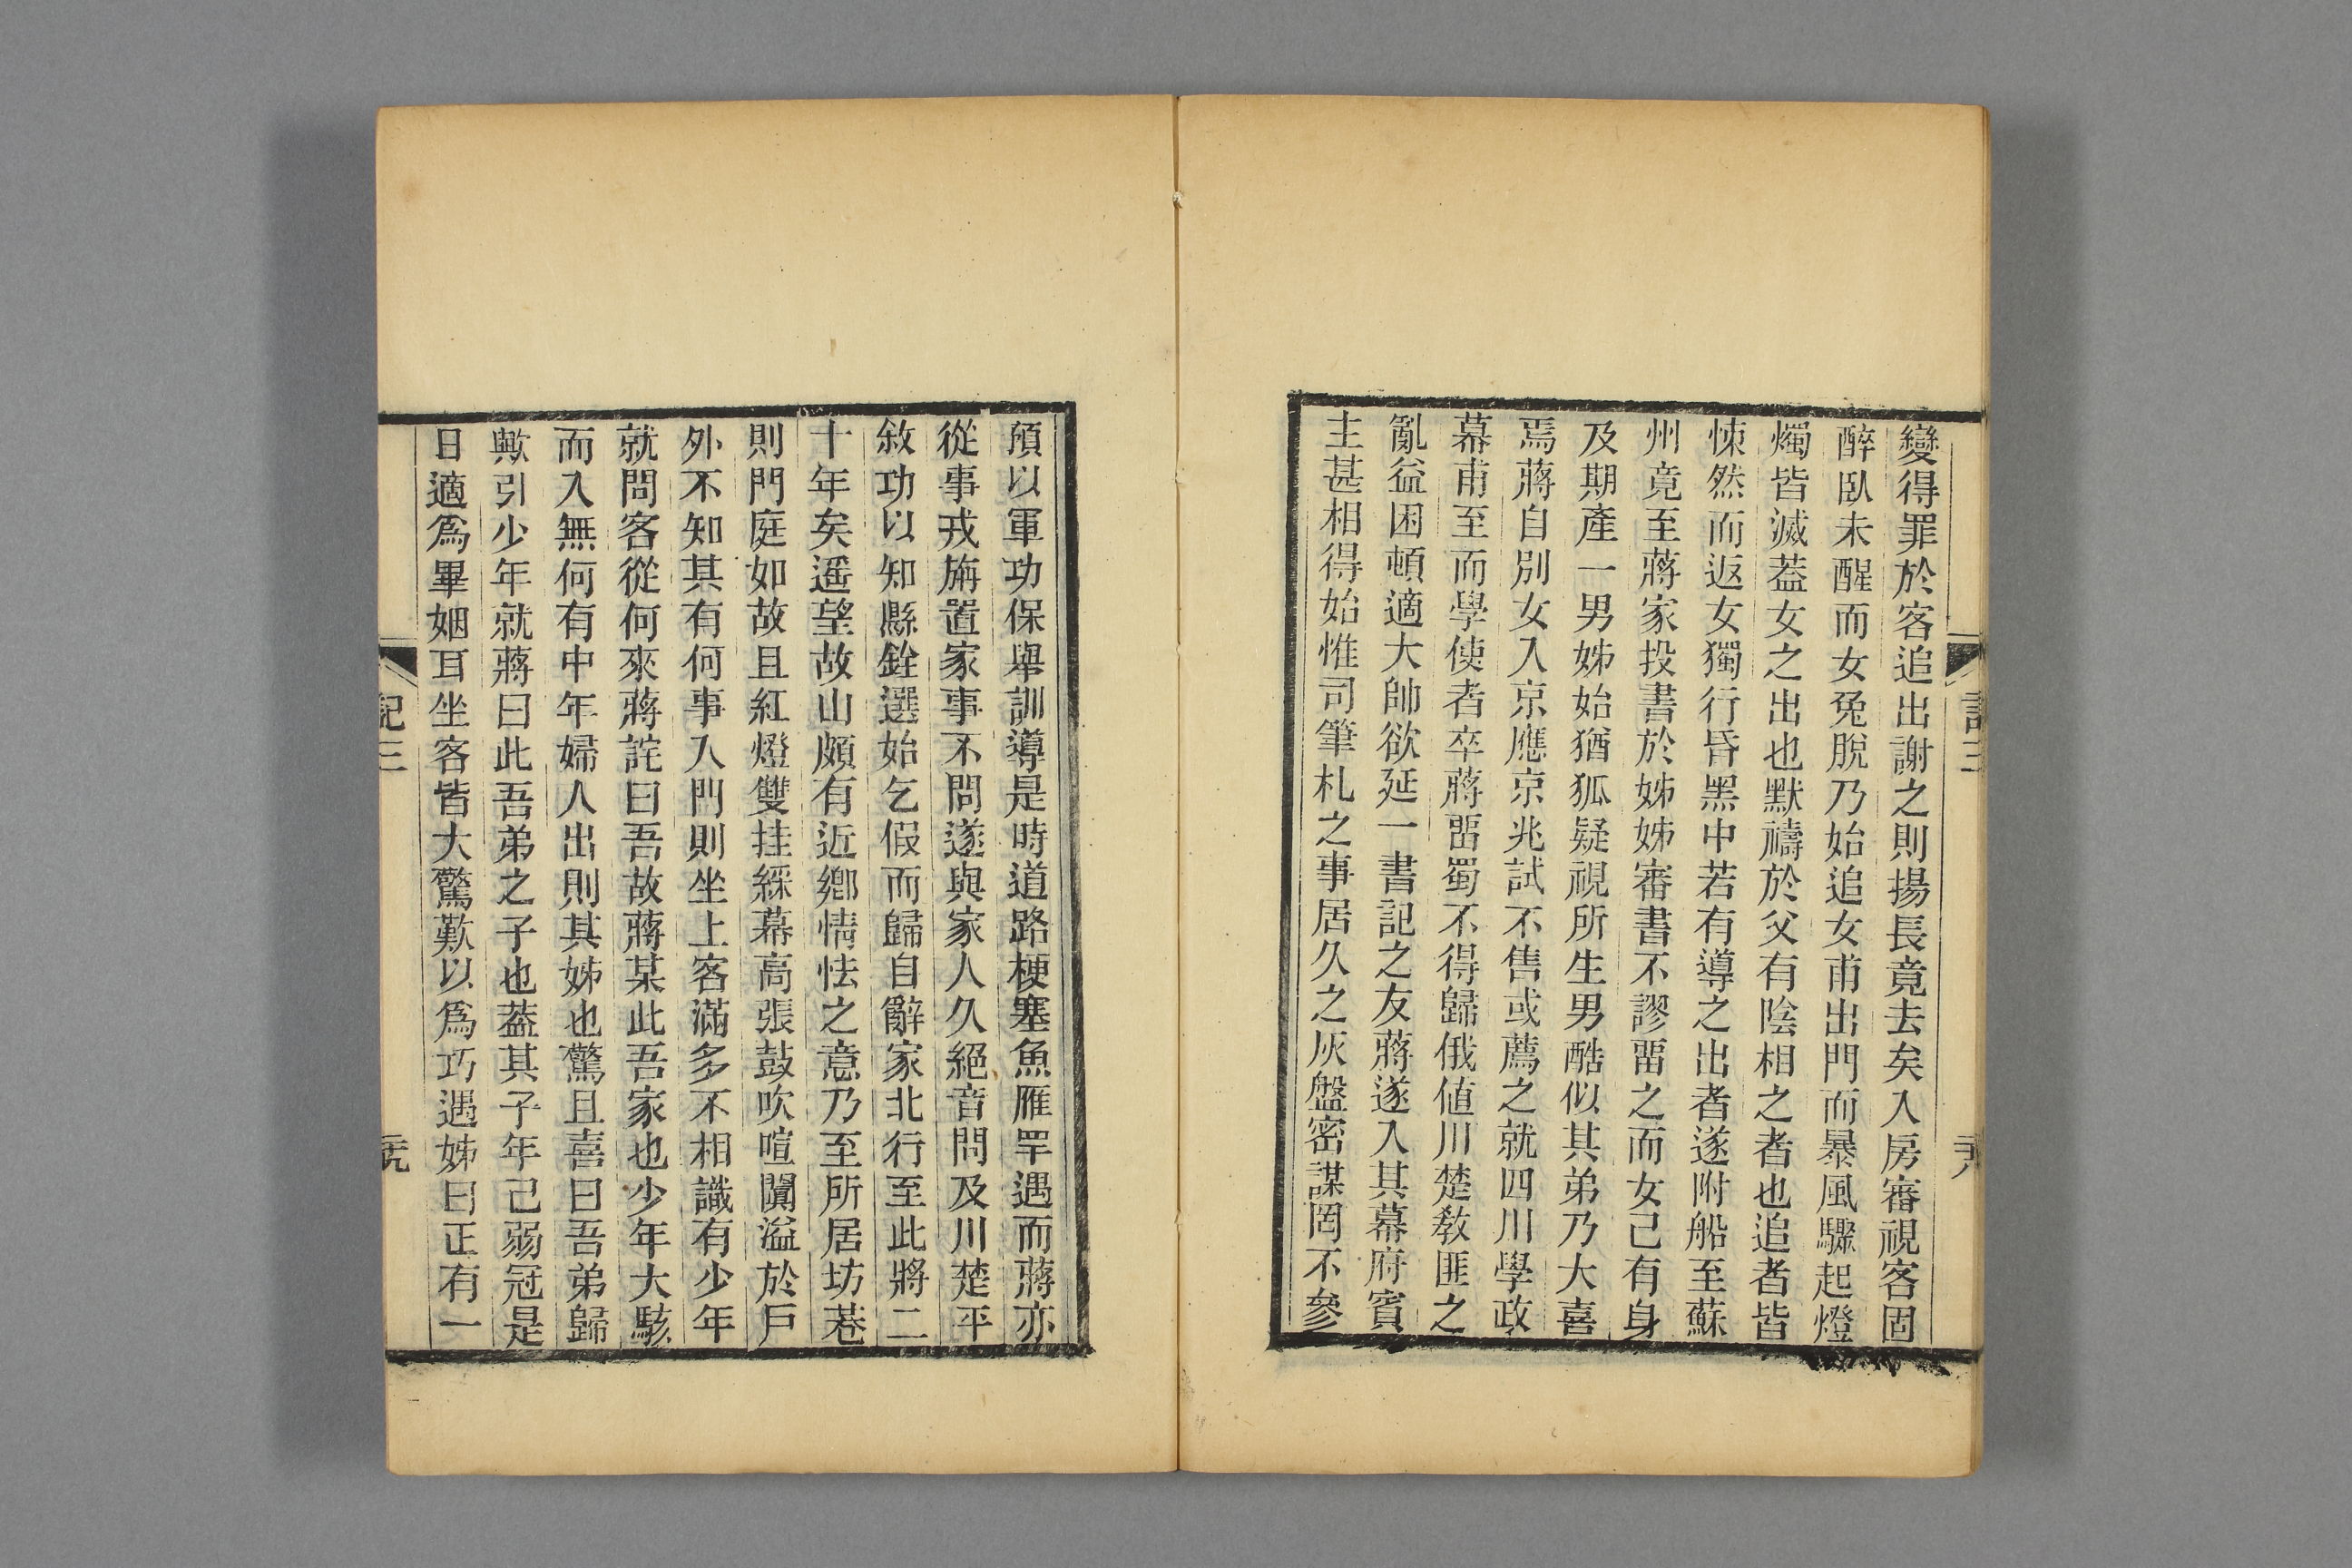 變得罪於客追出謝之則揚長竟去矣入房審視客固
醉臥未醒而女兔脫乃始追女甫出門而暴風驟起燈
燭皆滅葢女之出也默禱於父有陰相之者也追者皆
悚然而返女獨行昏黑中若有導之出者遂附船至蘇
州竟至蔣家投書於姊姊審書不謬畱之而女己有身
及期產一男姊始猶狐疑視所生男酷似其弟乃大喜
焉蔣自別女入京應京兆試不售或薦之就四川學政
幕甫至而學使者卒蔣畱蜀不得歸俄値川楚敎匪之
亂益困頓適大帥欲延一書記之友蔣遂入其幕府賓
主甚相得始惟司筆札之事居久之灰盤密謀罔不參
預以軍功保舉訓導是時道路梗塞魚雁罕遇而蔣亦
從事戎旃置家事不問遂與家人久絕音問及川楚平
敘功以知縣銓選始乞假而歸自辭家北行至此將二
十年矣遥望故山頗有近鄉情怯之意乃至所居坊巷
則門庭如故且紅燈雙挂綵幕高張鼓吹喧闐溢於戸
外不知其有何事入門則坐上客滿多不相識有少年
就問客從何來蔣詫曰吾故蔣某此吾家也少年大駭
而入無何有中年婦人出則其姊也驚且喜曰吾弟歸
歟引少年就蔣曰此吾弟之子也葢其子年己弱冠是
日適爲畢姻耳坐客皆大驚歎以爲巧遇姊曰正有一
記三